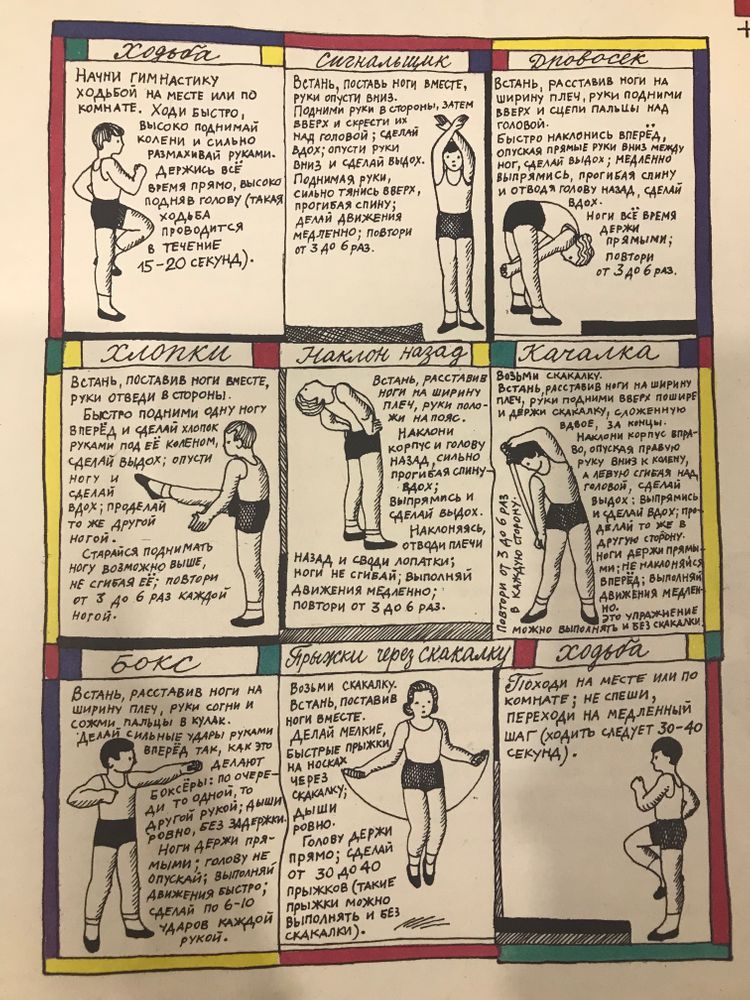 Ходьба
Начни гимнастику
ходьбой на месте или по
комнате. Ходи быстро,
высоко поднимай
колени и сильно
размахивай руками.
Держись всё
время прямо, высоко
подняв голову (такая
ходьба
проводится
в течение
15-20 секунд).
Сигнальщик
Встань, поставь ноги вместе,
руки опусти вниз.
Подними руки в стороны, затем
вверх и скрести их
над головой; сделай
вдох; опусти руки
вниз и сделай выдох.
Поднимая руки,
сильно тянись вверх,
прогибая спину;
делай движения
медленно; повтори
от 3 до 6 раз.
Дровосек
Встань, расставив ноги на
ширину плеч, руки подними
вверх и сцепи пальцы над
головой.
Быстро наклонись вперёд,
опуская прямые руки вниз между
ног, сделай выдох; медленно
выпрямись, прогибая спину
и отводя голову назад, сделай
вдох.
Ноги всё время
держи
прямыми;
повтори
от 3 до 6 раз.
Хлопки
Встань, поставив ноги вместе,
руки отведи в стороны.
Быстро подними одну ногу
вперёд и сделай хлопок
руками под её коленом,
сделай выдох; опусти
ногу и
сделай
вдох; проделай
то же другой
ногой.
Старайся поднимать
ногу возможно выше,
не сгибая её; повтори
от 3 до 6 раз каждой
ногой.
Наклон назад
Встань, расставив
ноги на ширину
плеч, руки поло-
жи на пояс.
Наклони
корпус и голову
назад, сильно
прогибая спину-
вдох;
выпрямись и
сделай выдох.
Наклоняясь,
отводи плечи
назад и своди лопатки;
ноги не сгибай; выполняй
движения медленно;
повтори от 3 до 6 раз.
Качалка
Возьми скакалку.
Встань, расставив ноги на ширину
плеч, руки подними вверх пошире
и держи скакалку, сложенную
вдвое, за концы.
Наклони корпус впра-
во, опуская правую
руку вниз к колену,
а левую сгибая над
головой, сделай
выдох; выпрямись
и сделай вдох; про-
делай то же в
другую сторону.
Ноги держи прямы-
ми; не наклоняйся
вперёд; выполняй
движения медлен-
но.
Это упражнение
можно выполнять и без скакалки.
Повтори от 3 до 6 раз
в каждую сторону.
Бокс
Встань, расставив ноги на
ширину плеч, руки согни и
сожми пальцы в кулак.
Делай сильные удары руками
вперёд так, как это
делают
боксёры: по очере-
ди то одной, то
другой рукой; дыши
ровно, без задержки.
Ноги держи пря-
мыми; голову не
опускай; выполняй
движения быстро;
сделай по 6-10
ударов каждой
рукой.
Прыжки через скакалку
Возьми скакалку.
Встань, поставив
ноги вместе.
Делай мелкие,
быстрые прыжки
на носках
через
скакалку;
дыши
ровно.
Голову держи
прямо; сделай
от 30 до 40
прыжков (такие
прыжки можно
выполнять и без
скакалки).
Ходьба
Походи на месте или по
комнате; не спеши,
переходи на медленный
шаг (ходить следует 30-40
секунд).